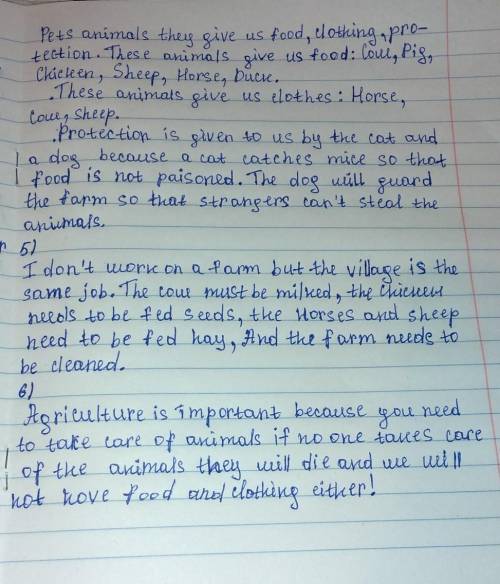 Pets animals they give us food, clothing, pro-
tection. These animals give us food: Cow, Pig,
Chicken, Sheep, Horse, Duck.
.These animals give us clothes: Horse,
Cow, Sheep.
.Protection is given to us by the cat and
a dog because a cat catches mice so that
food is not paisoned. The dog will guard
the farm so that strangers can't steal the
animals.
5)
I don't work on a farm but the village is the
same job. The cow must be milked, the Chicken
needs to be fed seeds, the Horses and sheep
need to be fed hay, And the farm needs to
be cleaned.
6)
Agriculture is important because you need
to take care of animals if no one takes care
of the animals they will die and we will
not hove food and clothing either!